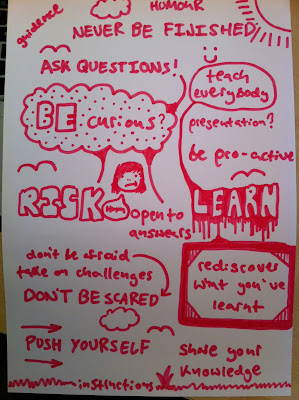 HUMOUR
guidence
NEVER BE FINISHED
ASK QUESTIONS!
teach
everybody
BE curious?
presentation?
be pro-active
RISK
Hmm
open to
answers
LEARN
don't be afraid
take on challenges
DON'T BE SCARED
rediscover
what you've
learnt
PUSH YOURSELF
share your
knowledge
instinctions